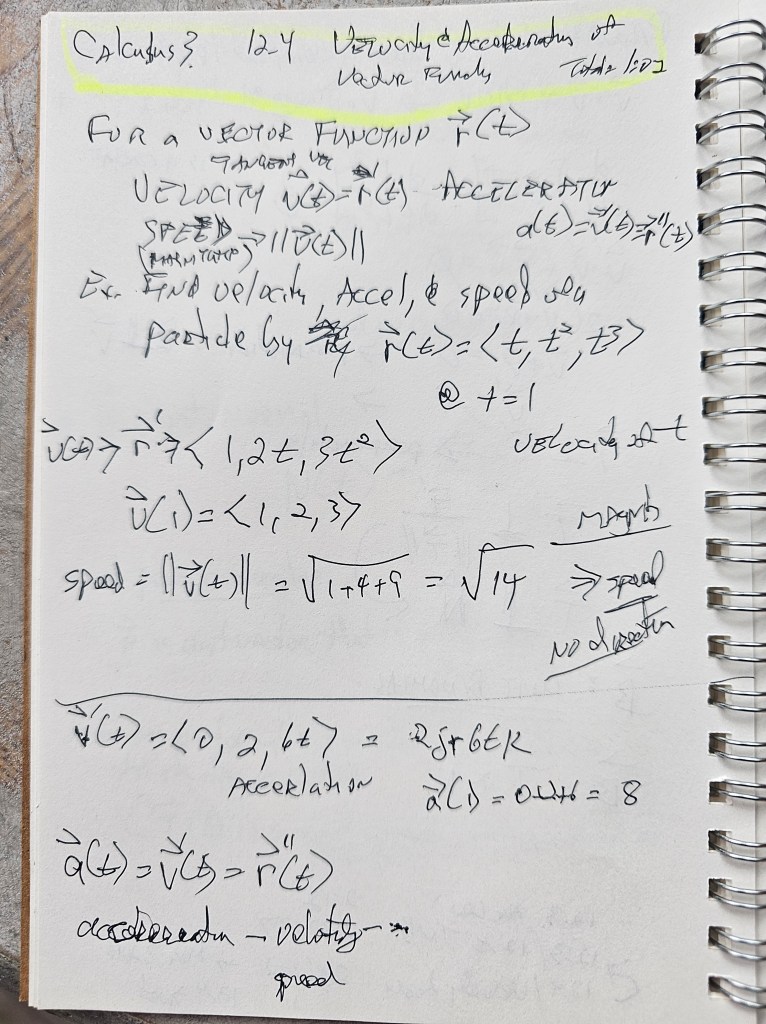 Calculus 3. 12.4 Velocity & Acceleration of
Vector Functs
FOR A VECTOR FUNCTION r⃗(t)
TANGENT VEC
VELOCITY v⃗(t) = r⃗'(t) ACCELERATION
SPEED → ||v⃗(t)|| a(t) = v⃗'(t) = r⃗''(t)
Ex. FIND velocity, Accel, & speed
particle by r⃗(t) = ⟨t, t², t³⟩
@ t = 1
v⃗(t) ⇒ r⃗' ⇒ ⟨1, 2t, 3t²⟩ VELOCITY t
v⃗(1) = ⟨1, 2, 3⟩
speed = ||v⃗(t)|| = √1+4+9 = √14 ⇒ speed
NO direction
v⃗'(t) = ⟨0, 2, 6t⟩ = 2j+6tk
Accerlation a⃗(1) = 0+2+6 = 8
a⃗(t) = v⃗'(t) = r⃗''(t)
acceleration – velocity –
speed